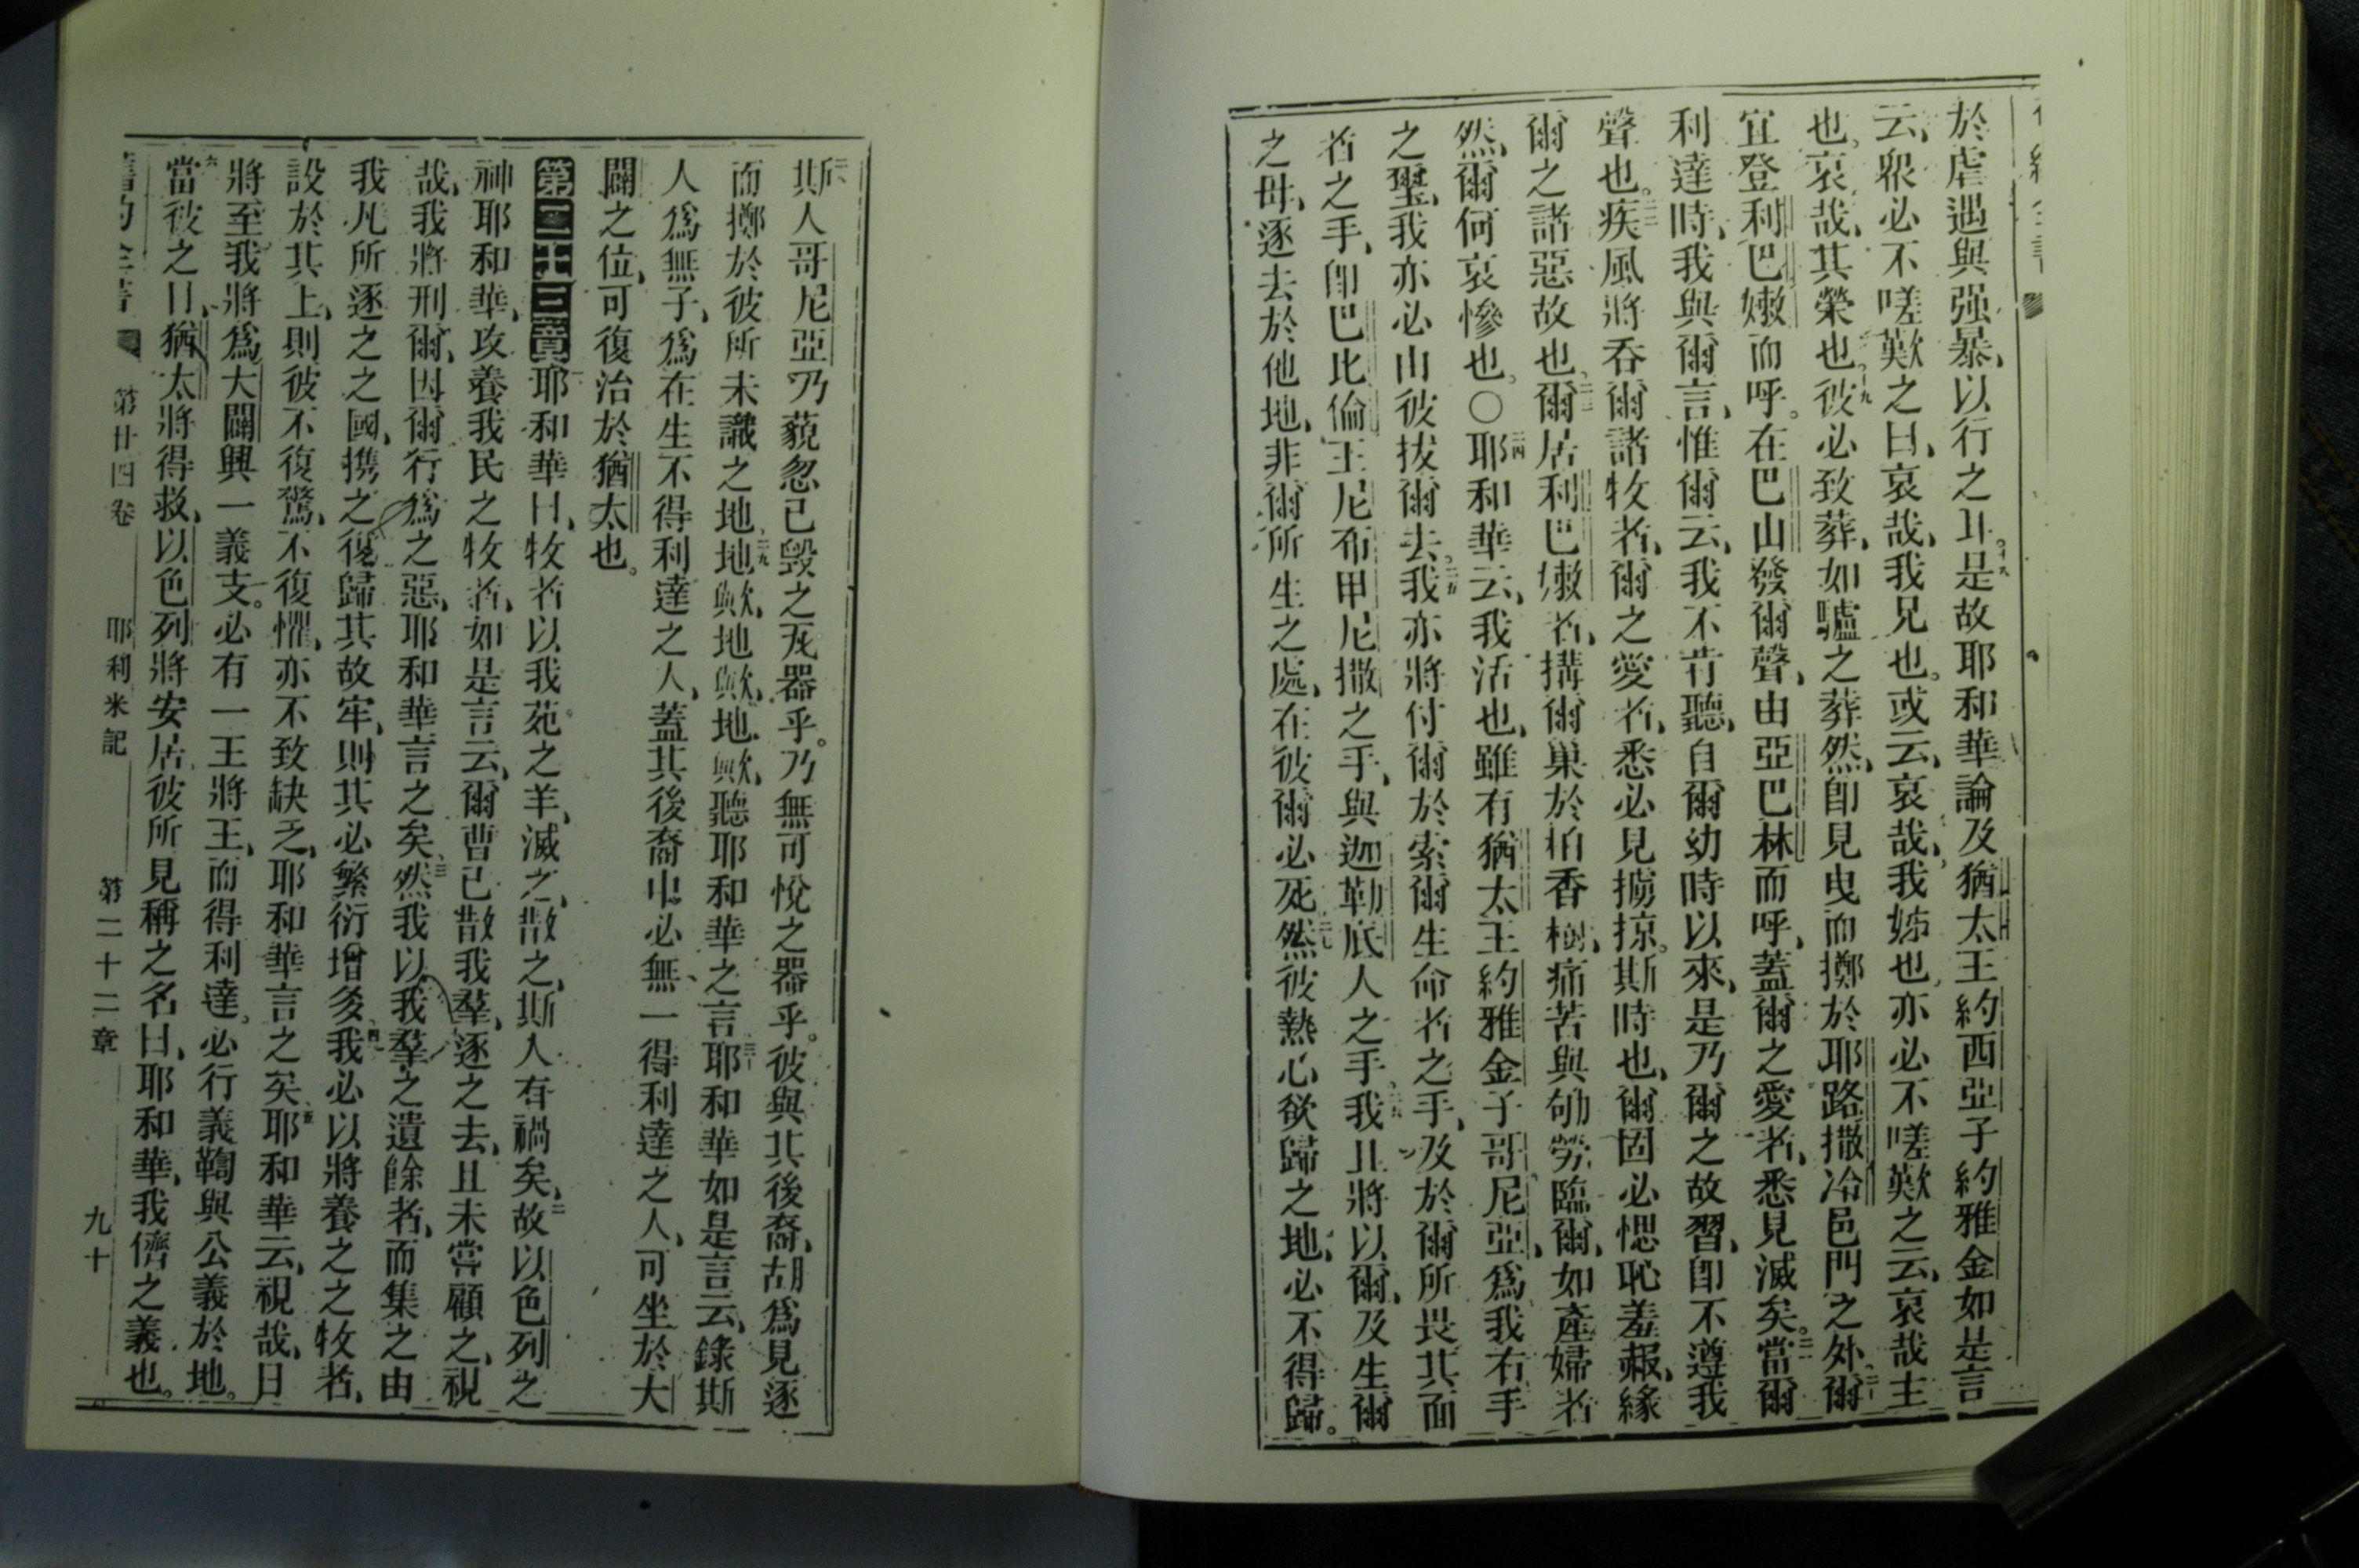 於虐遇與强暴、以行之耳。十八是故耶和華論及猶太王約西亞子約雅金如是言
云、眾必不嗟歎之曰、哀哉、我兄也。或云、哀哉、我姊也、亦必不嗟歎之云、哀哉主
也。哀哉、其榮也。十九彼必致葬、如驢之葬然、卽見曳而擲於耶路撒冷邑門之外。二十爾
宜登利巴嫩而呼。在巴山發爾聲、由亞巴林而呼、蓋爾之愛者、悉見滅矣。二一當爾
利達時、我與爾言、惟爾云、我不肯聽、自爾幼時以來、是乃爾之故習、卽不遵我
聲也。二二疾風將吞爾諸牧者、爾之愛者、悉必見擄掠。斯時也、爾固必愢恥羞赧、緣
爾之諸惡故也。二三爾居利巴嫩者、搆爾巢於柏香樹、痛苦與劬勞臨爾、如產婦者
然、爾何哀慘也。○二四耶和華云、我活也、雖有猶太王約雅金子哥尼亞、爲我右手
之璽、我亦必由彼拔爾去。二五我亦將付爾於索爾生命者之手、及於爾所畏其面
者之手、卽巴比倫王尼布甲尼撒之手、與迦勒底人之手。二六我且將以爾、及生爾
之母、逐去於他地、非爾所生之處、在彼爾必死。二七然彼熱心欲歸之地、必不得歸。
二八斯人哥尼亞乃藐忽已毀之瓦器乎。乃無可悅之器乎。彼與其後裔、胡爲見逐
而擲於彼所未識之地。二九地歟、地歟、地歟、聽耶和華之言。三十耶和華如是言云、錄斯
人爲無子、爲在生不得利達之人、蓋其後裔中、必無一得利達之人、可坐於大
闢之位、可復治於猶太也。
第二十三章一耶和華曰、牧者以我苑之羊、滅之、散之、斯人有禍矣、二故以色列之
神耶和華、攻養我民之牧者、如是言云、爾曹已散我羣、逐之去、且未嘗顧之、視
哉、我將刑爾、因爾行爲之惡、耶和華言之矣、三然我以我羣之遺餘者、而集之由
我凡所逐之之國、携之復歸其故牢、則其必繁衍增多、四我必以將養之之牧者、
設於其上、則彼不復驚、不復懼、亦不致缺乏、耶和華言之矣。五耶和華云、視哉、日
將至、我將爲大闢興一義支。必有一王將王、而得利達。必行義鞫與公義於地。
六當彼之日、猶太將得救、以色列將安居、彼所見稱之名曰、耶和華、我儕之義也。
舊約全書 第廿四卷 耶利米記 第二十二章 九十